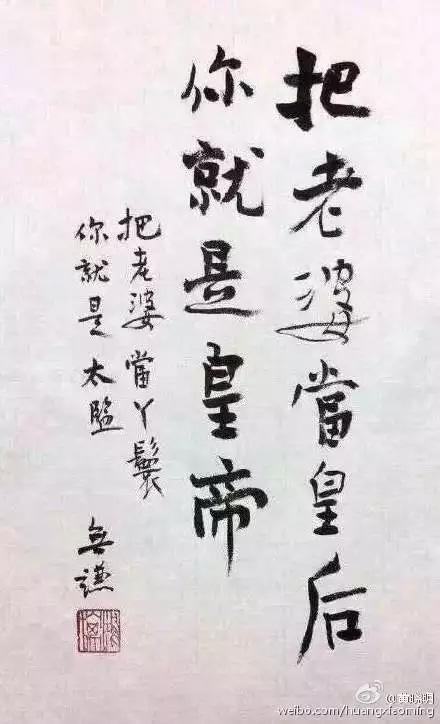 把老婆當皇后
你就是皇帝
把老婆當丫鬟
你就是太監
無謙
@黄晓明
weibo.com/huangxiaoming